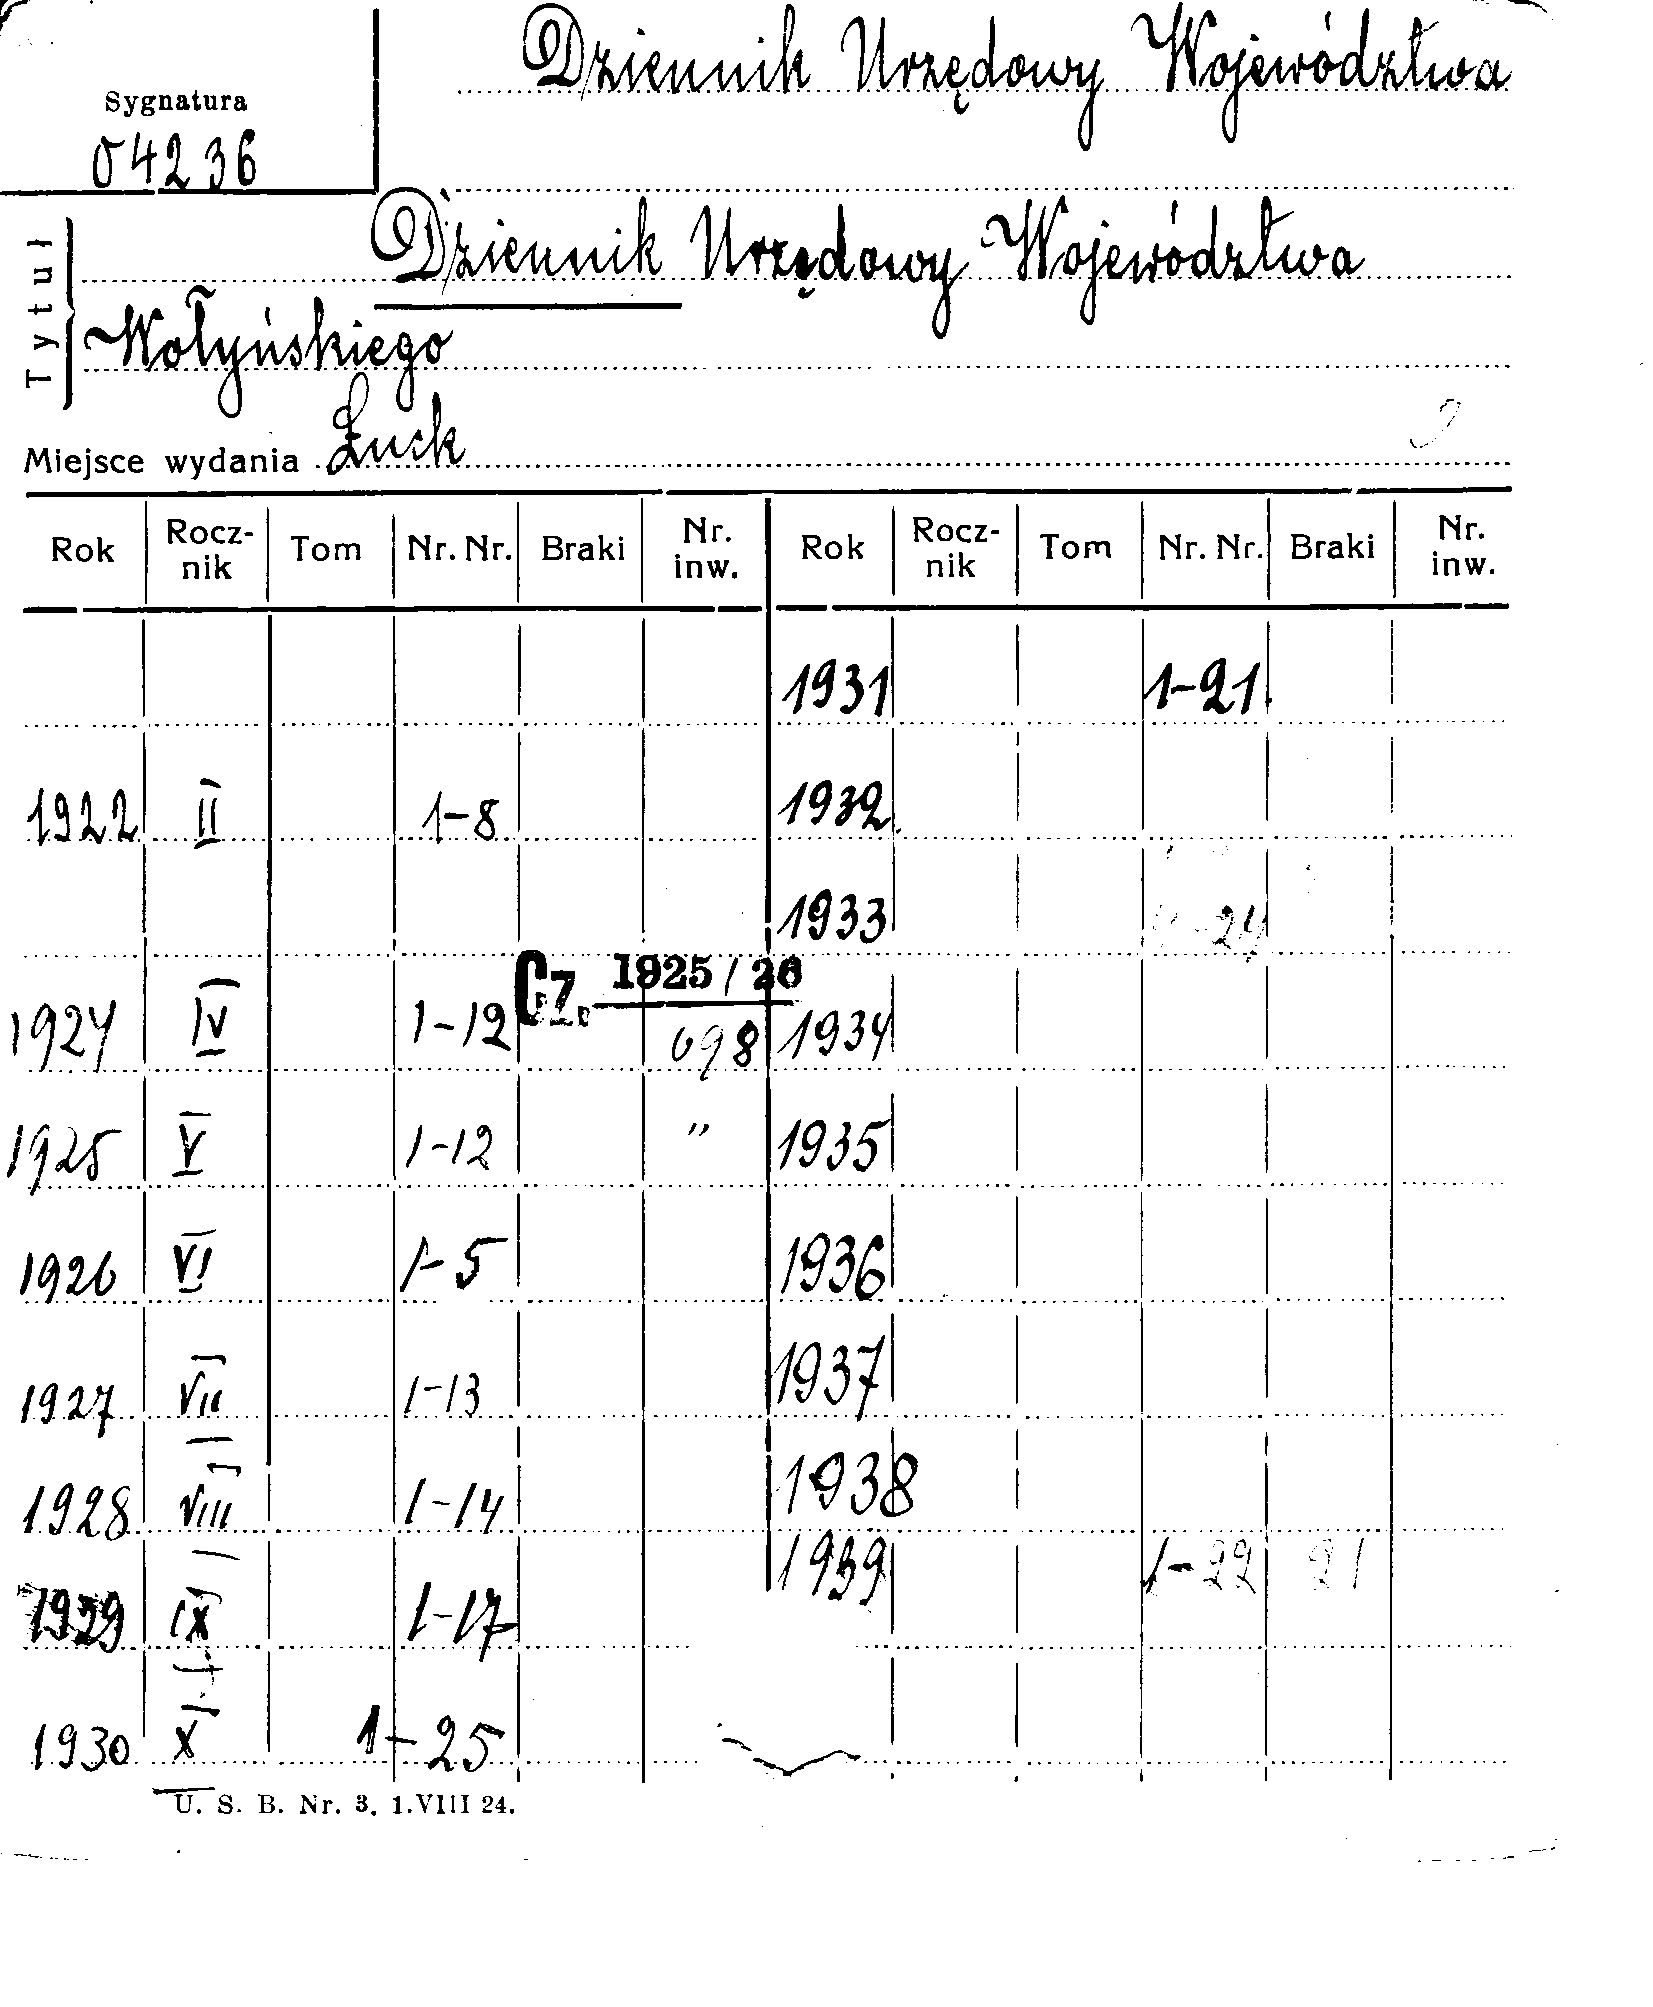 Dziennik Urzędowy Województwa
Sygnatura
04236
Tytuł
Dziennik Urzędowy Województwa
Wołyńskiego
Miejsce wydania Łuck
Rok Rocz-nik Tom Nr. Nr. Braki Nr. inw. Rok Rocz-nik Tom Nr. Nr. Braki Nr. inw.
1931 1-21
1922 II 1-8 1932
1933 -24
Cz. 1925/26
1924 IV 1-12 698 1934
1925 V 1-12 " 1935
1926 VI 1-5 1936
1927 VII 1-13 1937
1928 VIII 1-14 1938
1939 1-22 21
1929 IX 1-17
1930 X 1-25
U. S. B. Nr. 3. 1.VIII 24.